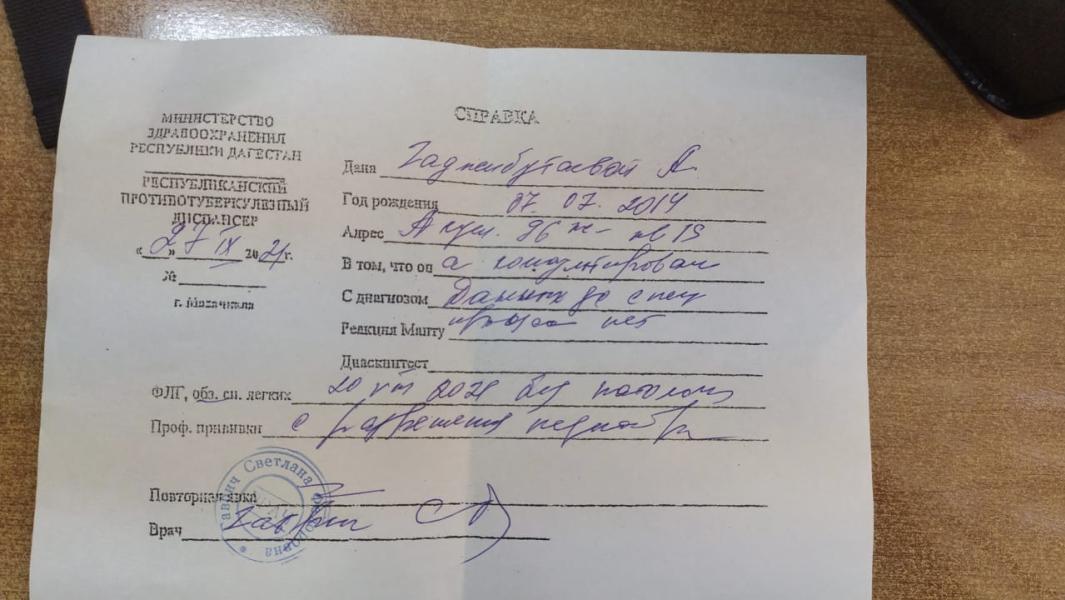 МИНИСТЕРСТВО
ЗДРАВООХРАНЕНИЯ
РЕСПУБЛИКИ ДАГЕСТАН
РЕСПУБЛИКАНСКИЙ
ПРОТИВОТУБЕРКУЛЕЗНЫЙ
ДИСПАНСЕР
«27» IX 2021г.
№
г. Махачкала
СПРАВКА
Дана Гаджибутаевой А.
Год рождения 07.07.2014
Адрес
В том, что он а консультирован
С диагнозом Данных за спец
Реакция Манту процесс нет
Диаскинтест
ФЛГ, обз. сн. легких 20 2021 без патологии
Проф. прививки с разрешения педиатра
Повторная явка
Врач Гаврич
Гаврич Светлана
ВРАЧ